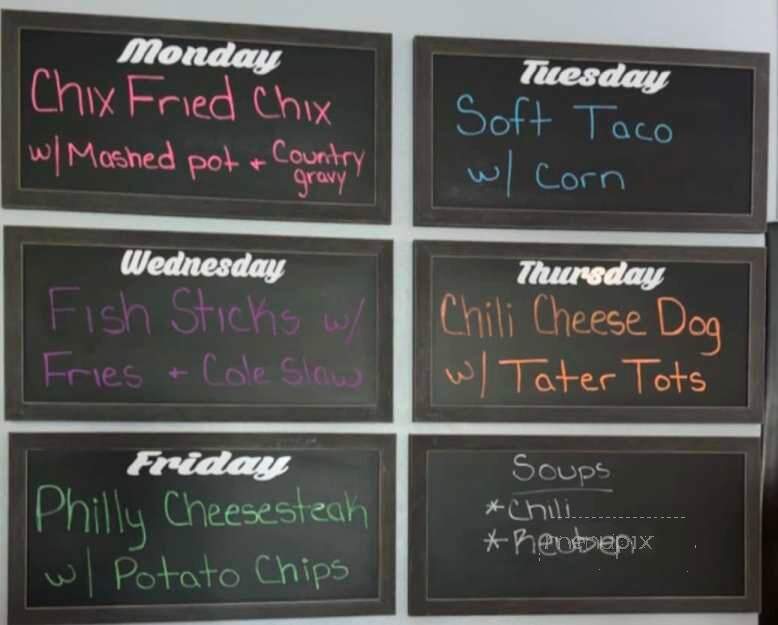 Monday
Chix Fried Chix
w/ Mashed pot + Country
gravy
Tuesday
Soft Taco
w/ Corn
Wednesday
Fish Sticks w/
Fries + Cole Slaw
Thursday
Chili Cheese Dog
w/ Tater Tots
Friday
Philly Cheesesteak
w/ Potato Chips
Soups
*Chili
*Reuben